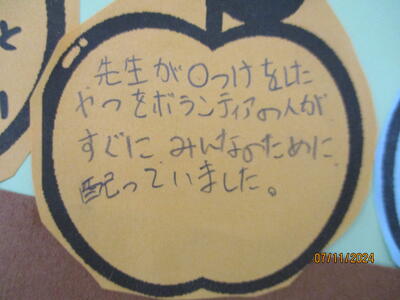 先生が〇つけをした
やつをボランティアの人が
すぐに みんなのために
配っていました。
と
07/11/2024